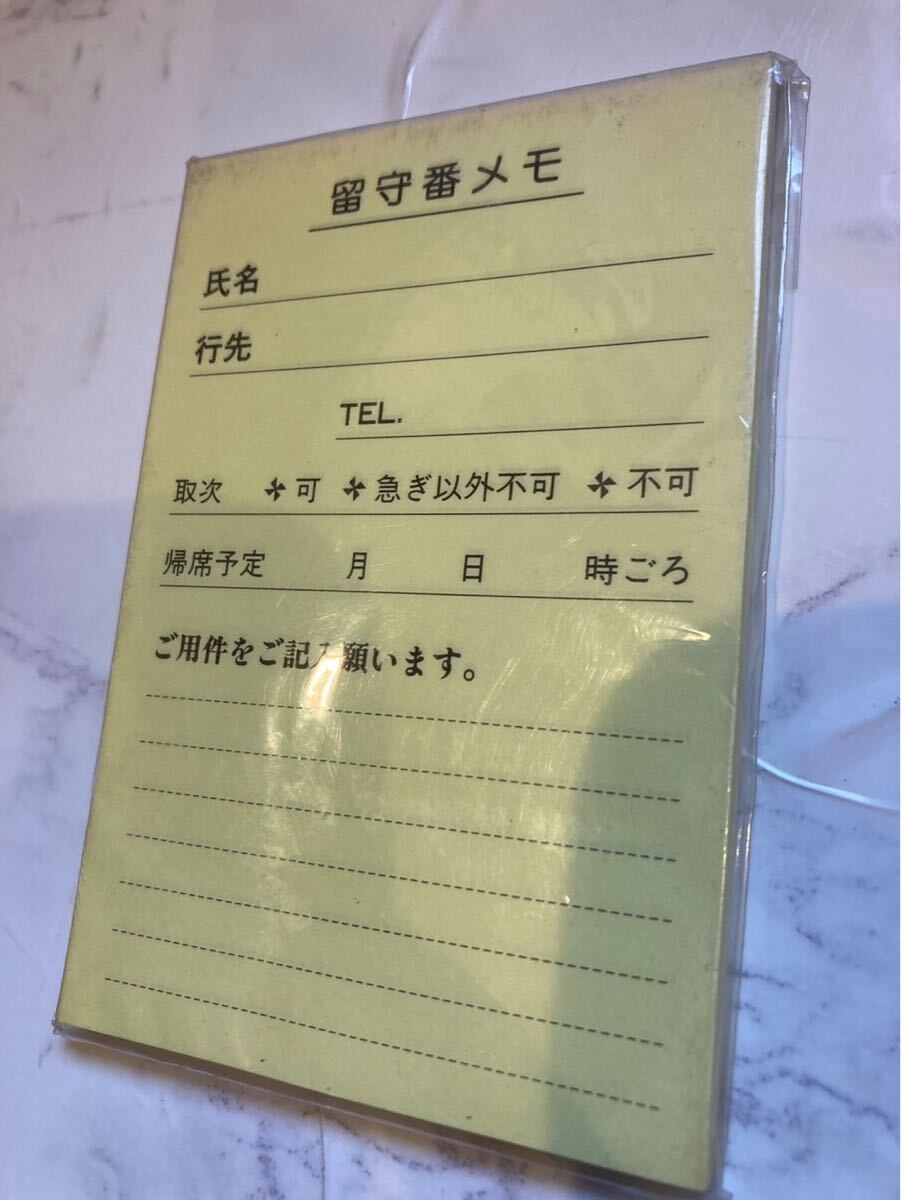 留守番メモ
氏名
行先
TEL.
取次 可 急ぎ以外不可 不可
帰席予定 月 日 時ごろ
ご用件をご記入願います。